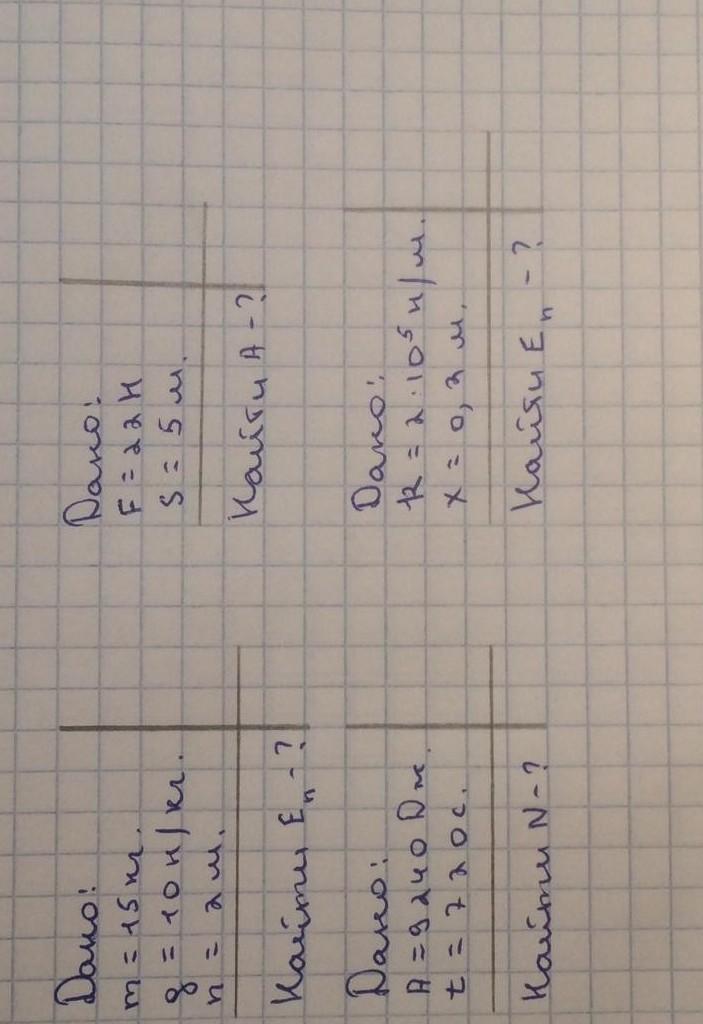 Дано:
m = 15 кг.
g = 10 н/кг.
h = 2 м.
Найти Eп - ?
Дано:
F = 22 Н
S = 5 м.
Найти A - ?
Дано:
A = 9240 Дж.
t = 720 с.
Найти N - ?
Дано:
k = 2·10⁵ н/м.
x = 0,2 м.
Найти Eп - ?